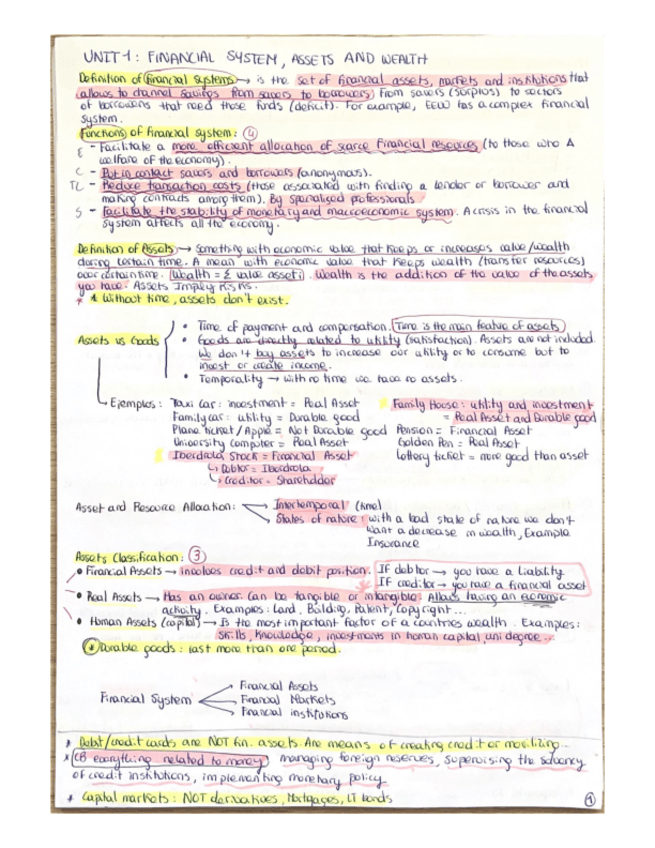 UNIT 1: FINANCIAL SYSTEM, ASSETS AND WEALTH
Definition of financial systems → is the set of financial assets, markets and institutions that
allows to channel savings from savers to borrowers from savers (surplus) to sectors
of borrowers that need those finds (deficit). For example, EEUU has a complex financial
system.
Functions of financial system: 4
E - Facilitate a more efficient allocation of scarce financial resources (to those who ∆
welfare of the economy).
C - Put in contact savers and borrowers (anonymous).
TC - Reduce transaction costs (those associated with finding a lender or borrower and
making contracts among them). By specialized professionals
S - Facilitate the stability of monetary and macroeconomic system. A crisis in the financial
system affects all the economy.
Definition of Assets → Something with economic value that keeps or increases value/wealth
during certain time. A mean with economic value that keeps wealth (transfer resources)
over certain time. Wealth = Σ value asset i. Wealth is the addition of the value of the assets
you have. Assets Imply Risks.
* Without time, assets don't exist.
Assets vs Goods
• Time of payment and compensation. Time is the main feature of assets
• Goods are directly related to utility (satisfaction). Assets are not included
We don't buy assets to increase our utility or to consume but to
invest or create income.
• Temporality → with no time we have no assets.
Ejemplos: Taxi car: investment = Real Asset
Family car: utility = Durable good
Plane ticket/Apple = Not Durable good
University computer = Real Asset
Iberdrola Stock = Financial Asset
↳ Debtor = Iberdrola
↳ Creditor = Shareholder
Family House: utility and investment
= Real Asset and Durable good
Pension = Financial Asset
Golden Pen = Real Asset
Lottery ticket = more good than asset
Asset and Resource Allocation: Intertemporal (time)
States of nature: with a bad state of nature we don't
want a decrease in wealth, Example
Insurance
Assets Classification: 3
• Financial Assets → involves credit and debit position. If debtor → you have a liability
If creditor → you have a financial asset
• Real Assets → Has an owner. Can be tangible or intangible. Allows having an economic
activity. Examples: Land, Building, Patent, Copyright...
• Human Assets (capital) → Is the most important factor of a countries wealth. Examples:
Skills, knowledge, investments in human capital, uni degree...
* Durable goods: last more than one period.
Financial System
Financial Assets
Financial Markets
Financial institutions
* Debit/credit cards are NOT fin. assets. Are means of creating credit or movilizing...
* CB everything related to money managing foreign reserves, supervising the solvency
of credit institutions, implementing monetary policy
* Capital markets: NOT derivatives, Mortgages, LT bonds
1